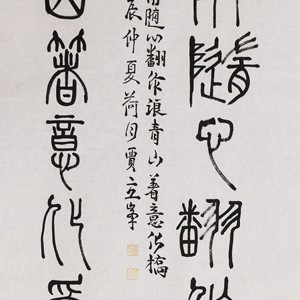 隨心翻作
雨隨心翻作浪青山著意化橋
辰仲夏荷月賈立峯
著意化為